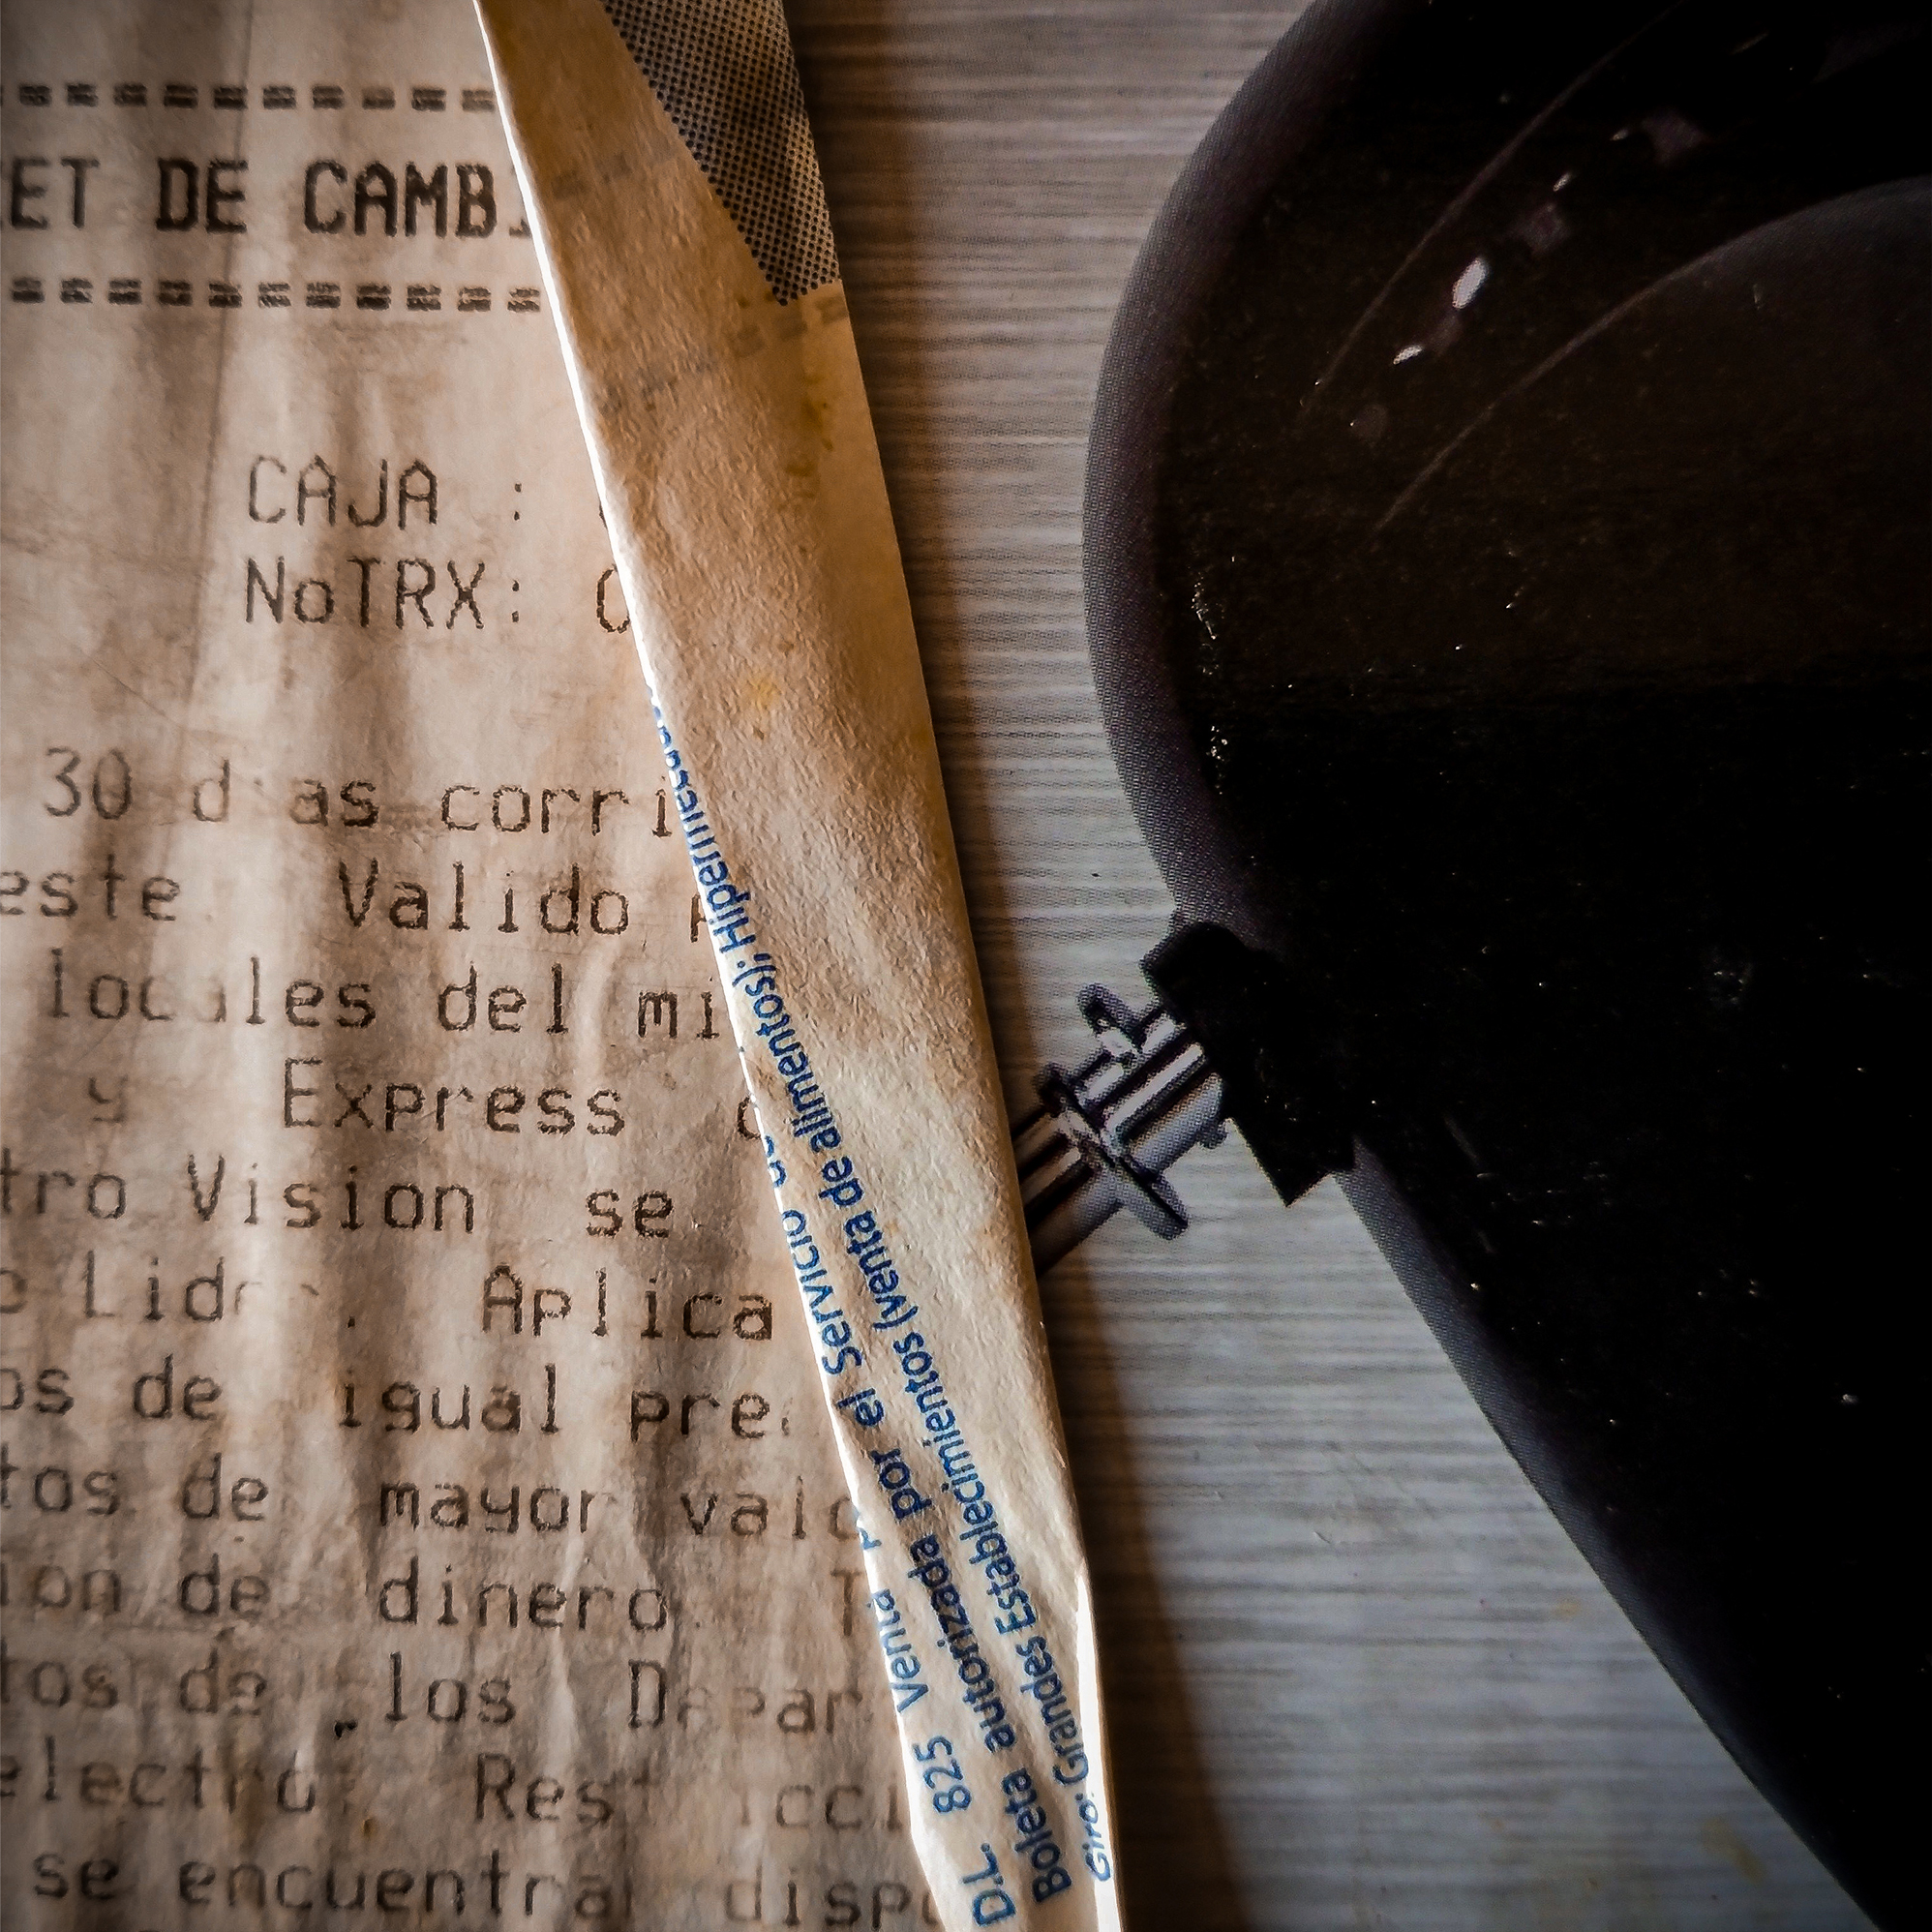 ET DE CAMB
CAJA :
NoTRX: 0
30 d as corri
este Valido
locales del mi
y Express
tro Vision se
Lid Aplica
os de igual pre
tos de mayor valo
ion de dinero. T
tos de los Depar
electro. Rest icci
se encuentra disp
D.L. 825 Venta
Boleta autorizada por el Servicio de
Giro: Grandes Establecimientos (venta de alimentos); Hipermercados